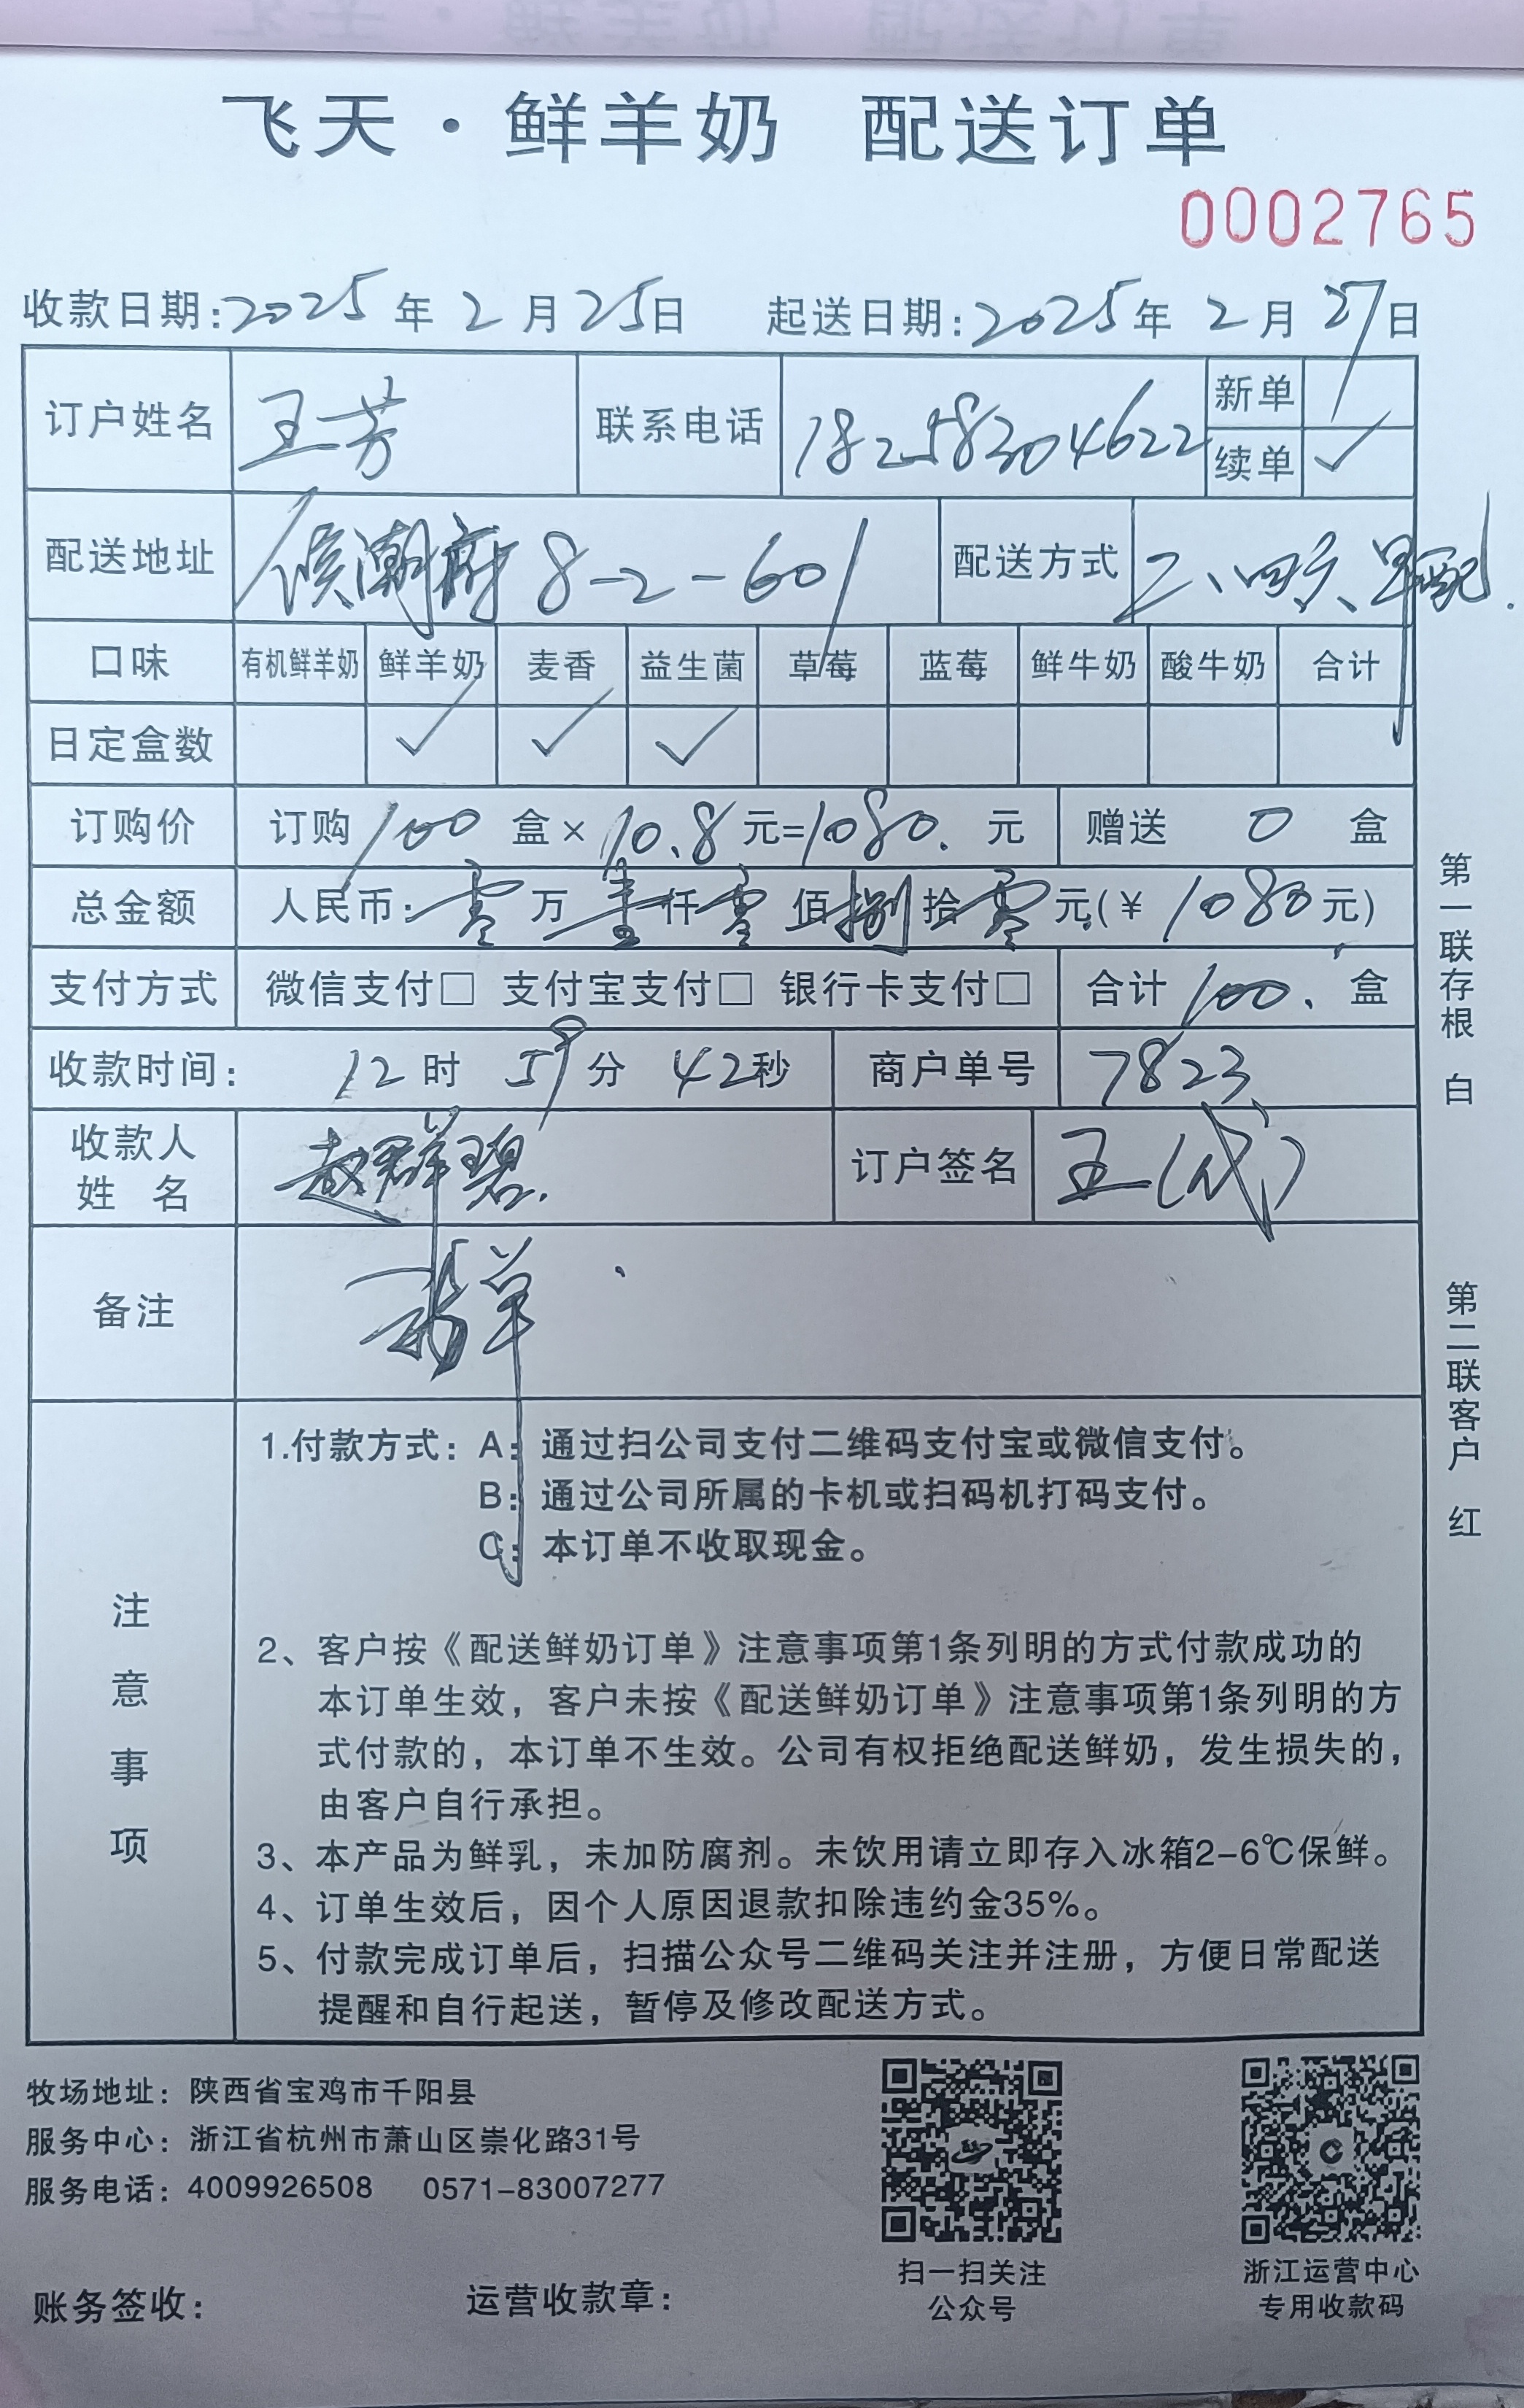 飞天·鲜羊奶 配送订单
0002765
收款日期:2025年2月25日 起送日期:2025年2月27日
订户姓名 王芳 联系电话 18258304622 新单
续单 ✓
配送地址 候潮府8-2-601 配送方式 二、四、六、早配.
口味 有机鲜羊奶 鲜羊奶 麦香 益生菌 草莓 蓝莓 鲜牛奶 酸牛奶 合计
日定盒数 ✓ ✓ ✓
订购价 订购100盒×10.8元=1080.元 赠送 0 盒
总金额 人民币:零万壹仟零佰捌拾零元(¥1080元)
支付方式 微信支付□ 支付宝支付□ 银行卡支付□ 合计100、盒
收款时间: 12时59分42秒 商户单号 7823
收款人
姓 名 赵群碧. 订户签名 王(代)
备注
注意事项
1.付款方式: A:通过扫公司支付二维码支付宝或微信支付。
B:通过公司所属的卡机或扫码机打码支付。
C:本订单不收取现金。
2、客户按《配送鲜奶订单》注意事项第1条列明的方式付款成功的
本订单生效，客户未按《配送鲜奶订单》注意事项第1条列明的方
式付款的，本订单不生效。公司有权拒绝配送鲜奶，发生损失的，
由客户自行承担。
3、本产品为鲜乳，未加防腐剂。未饮用请立即存入冰箱2-6℃保鲜。
4、订单生效后，因个人原因退款扣除违约金35%。
5、付款完成订单后，扫描公众号二维码关注并注册，方便日常配送
提醒和自行起送，暂停及修改配送方式。
第一联存根 白
第二联客户 红
牧场地址：陕西省宝鸡市千阳县
服务中心：浙江省杭州市萧山区崇化路31号
服务电话：4009926508 0571-83007277
扫一扫关注
公众号
浙江运营中心
专用收款码
账务签收：
运营收款章：